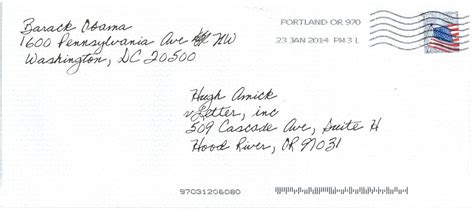 Barack Obama
1600 Pennsylvania Ave NW
Washington, DC 20500
PORTLAND OR 970
23 JAN 2014 PM 3 L
Hugh Amick
vLetter, inc
509 Cascade Ave, Suite H
Hood River, OR 97031
97031206080